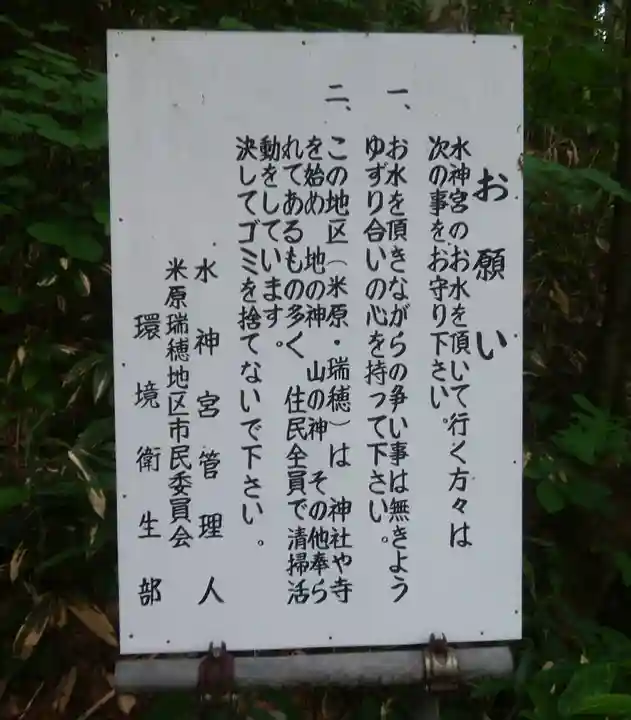 お願い
水神宮のお水を頂いて行く方々は
次の事をお守り下さい。
一、お水を頂きながらの争い事は無きよう
ゆずり合いの心を持って下さい。
二、この地区(米原・瑞穂)は 神社や寺
を始め 地の神 山の神 その他奉ら
れてあるもの多く 住民全員で清掃活
動をしています。
決してゴミを捨てないで下さい。
水神宮管理人
米原瑞穂地区市民委員会
環境衛生部